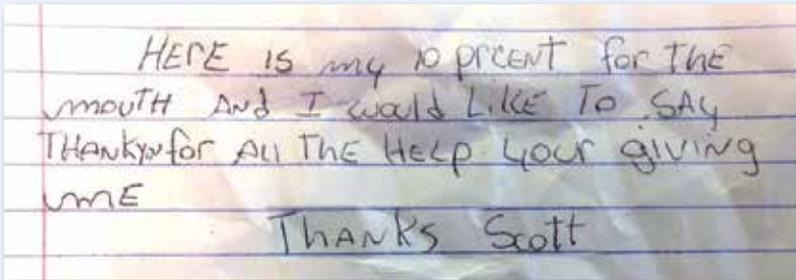 HERE IS my 10 prcENT for THE
mouTH ANd I would LIKE To SAy
THANKyou for All THE HELP your giving
mE
THANKS Scott